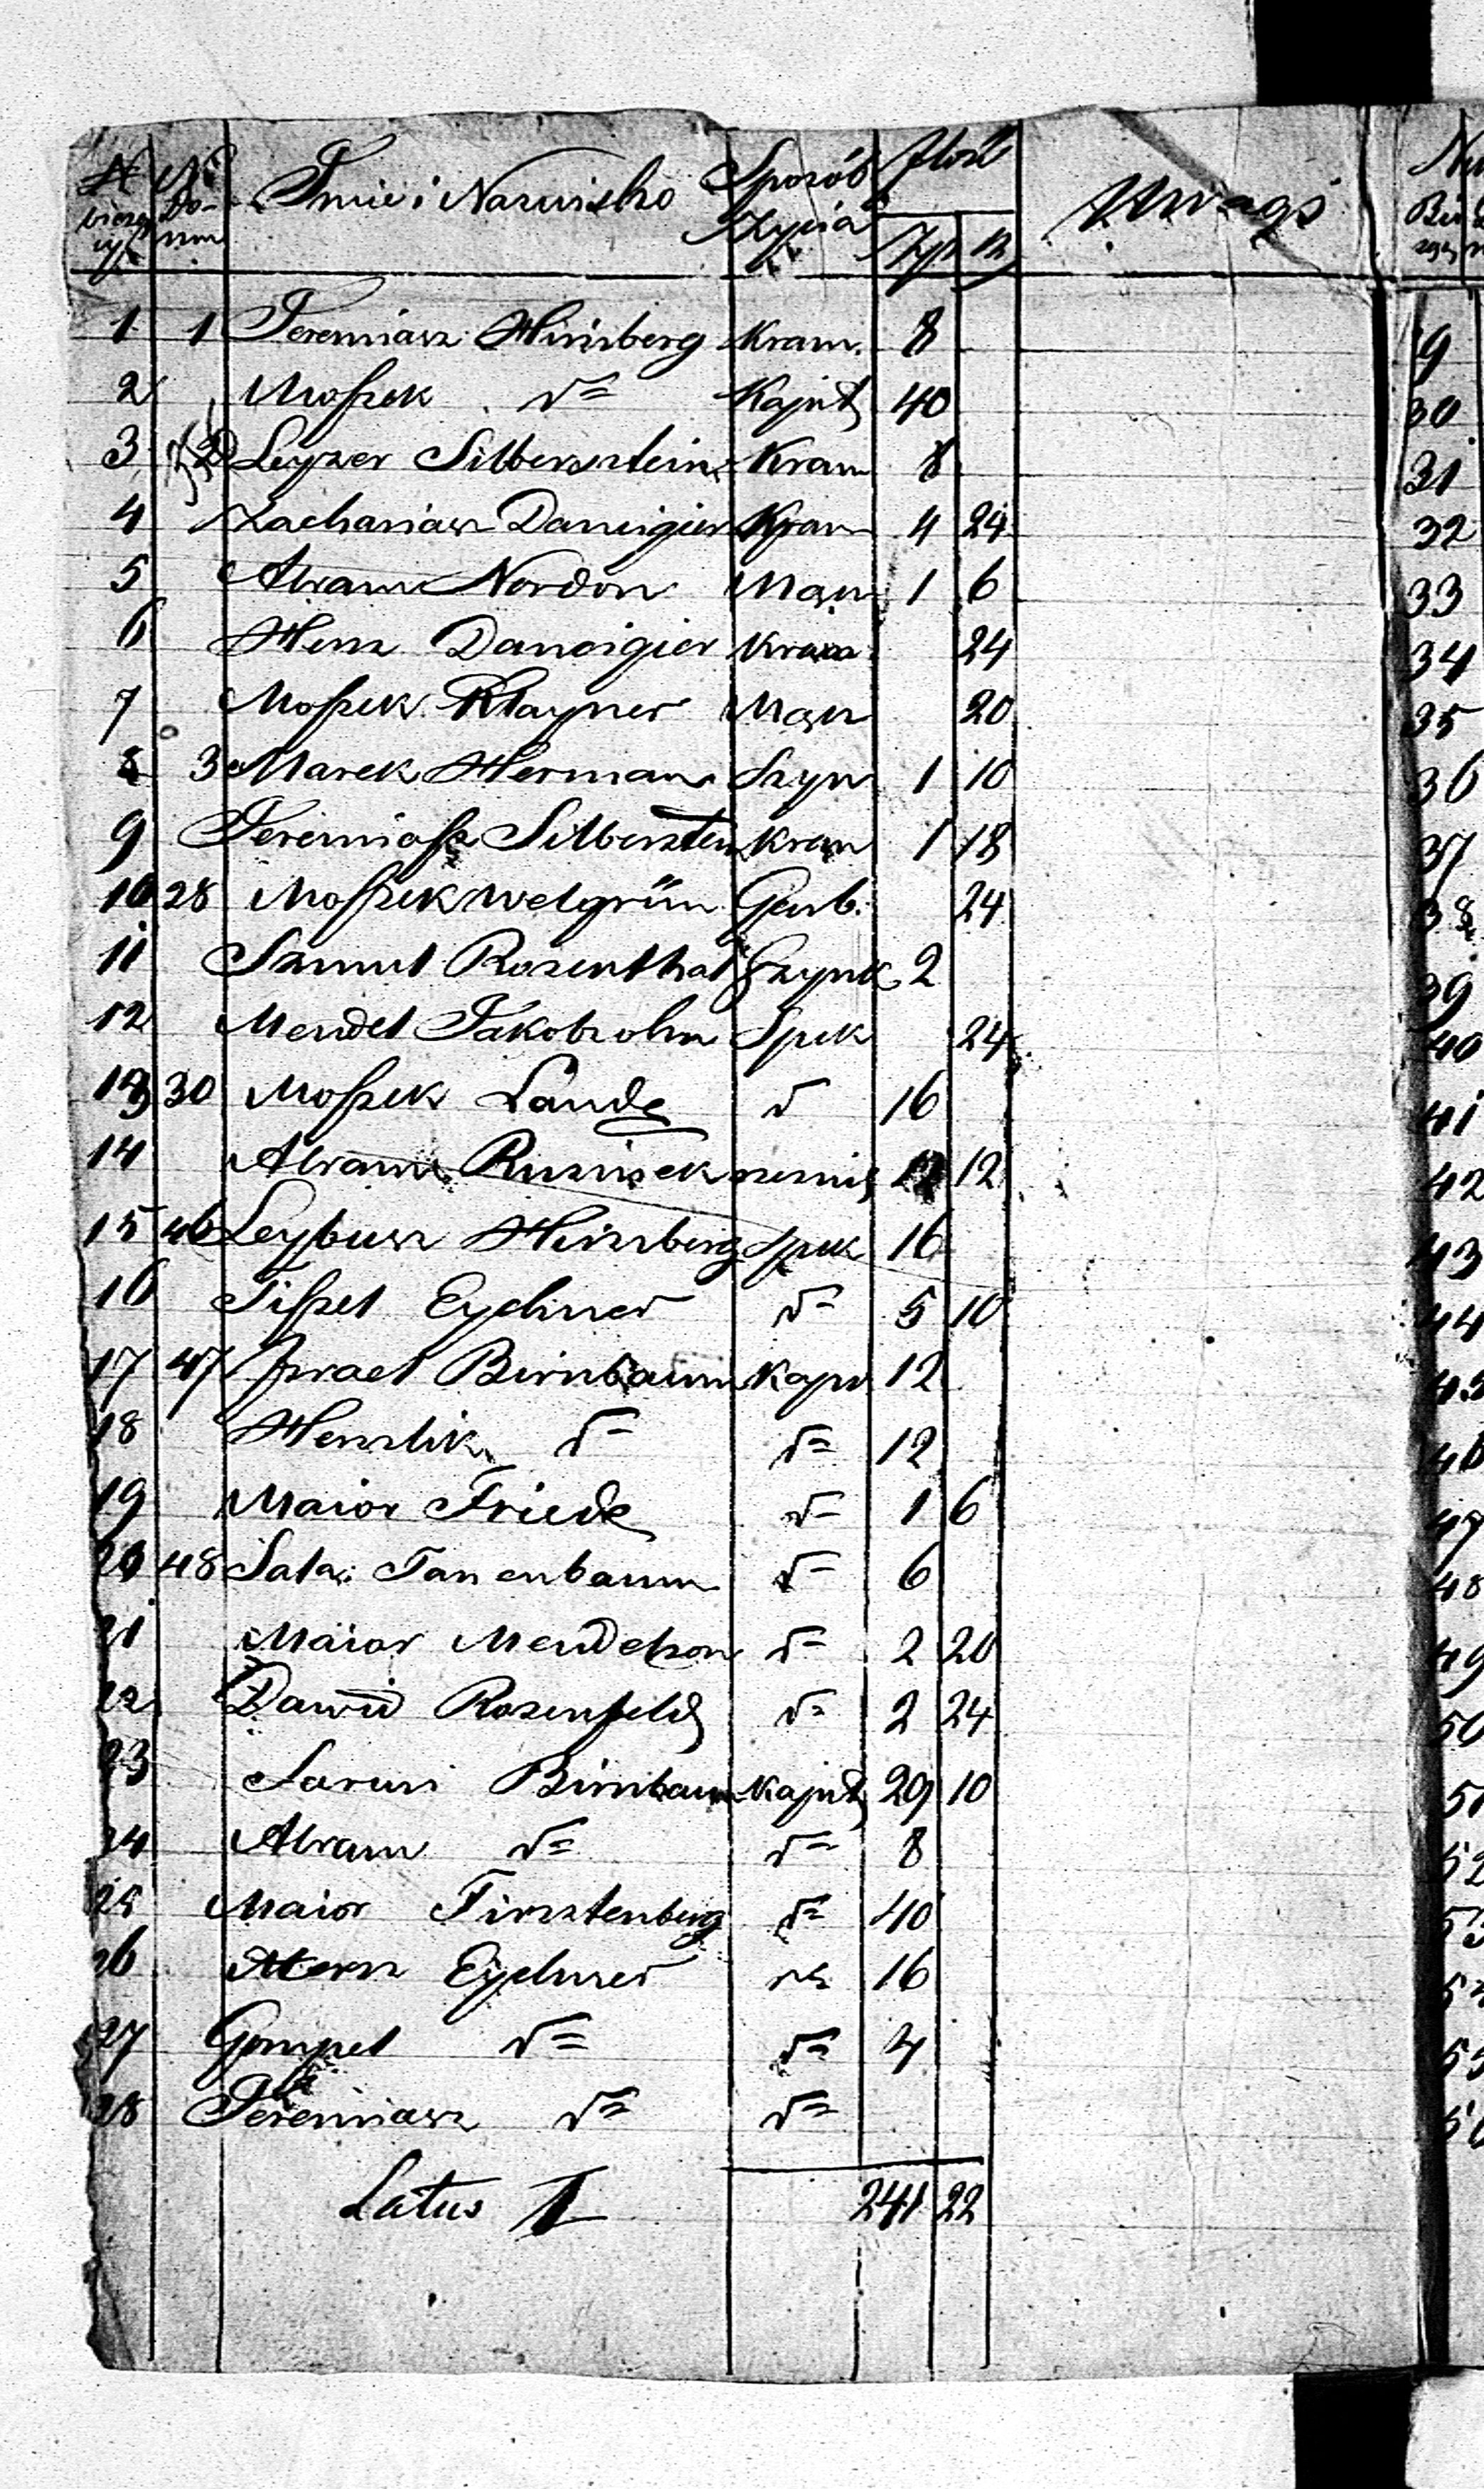 N bieżący № Domu Imie i Nazwisko Sposób Życia Ilość Zlp gr Uwagi
1 1 Jeremiasz Hirszberg Kram. 8
2 Moszek d= Kapit 40
3 2 Leyzer Silbersztein Kram 8
4 Zachariasz Dancigier Kram 4 24
5 Abram Nordon Mąn 1 6
6 Hersz Dancigier Kram 24
7 Moszek Klayner Mąn 20
8 3 Marek Herman Szyn 1 10
9 Jeremiasz Silberstein Kram 1 18
10 28 Moszek Welgrün Garb. 24
11 Szmul Rosenthal Szynk 2
12 Mendel Jakobsohn Spek 24
13 30 Moszek Lande d 16
14 Abram Ruziszek 12
15 46 Leybusz Hirszberg Spek 16
16 Fiszel Eychner d= 5 10
17 47 Israel Birnbaum Kapit 12
18 Herszlik d= d= 12
19 Maior Friede d= 1 6
20 48 Sala Tanenbaum d= 6
21 Maior Mendelson d= 2 20
22 Dawid Rosenfeld d= 2 24
23 Birnbaum Kapit 29 10
24 Abram d= d= 8
25 Maior Firsztenberg d= 40
26 Hersz Eychner d= 16
27 Gompel d= d= 4
28 Jeremiasz d= d=
Latus 1 241 22
30
31
32
33
34
35
36
37
38
39
40
41
42
43
44
46
47
48
49
50
51